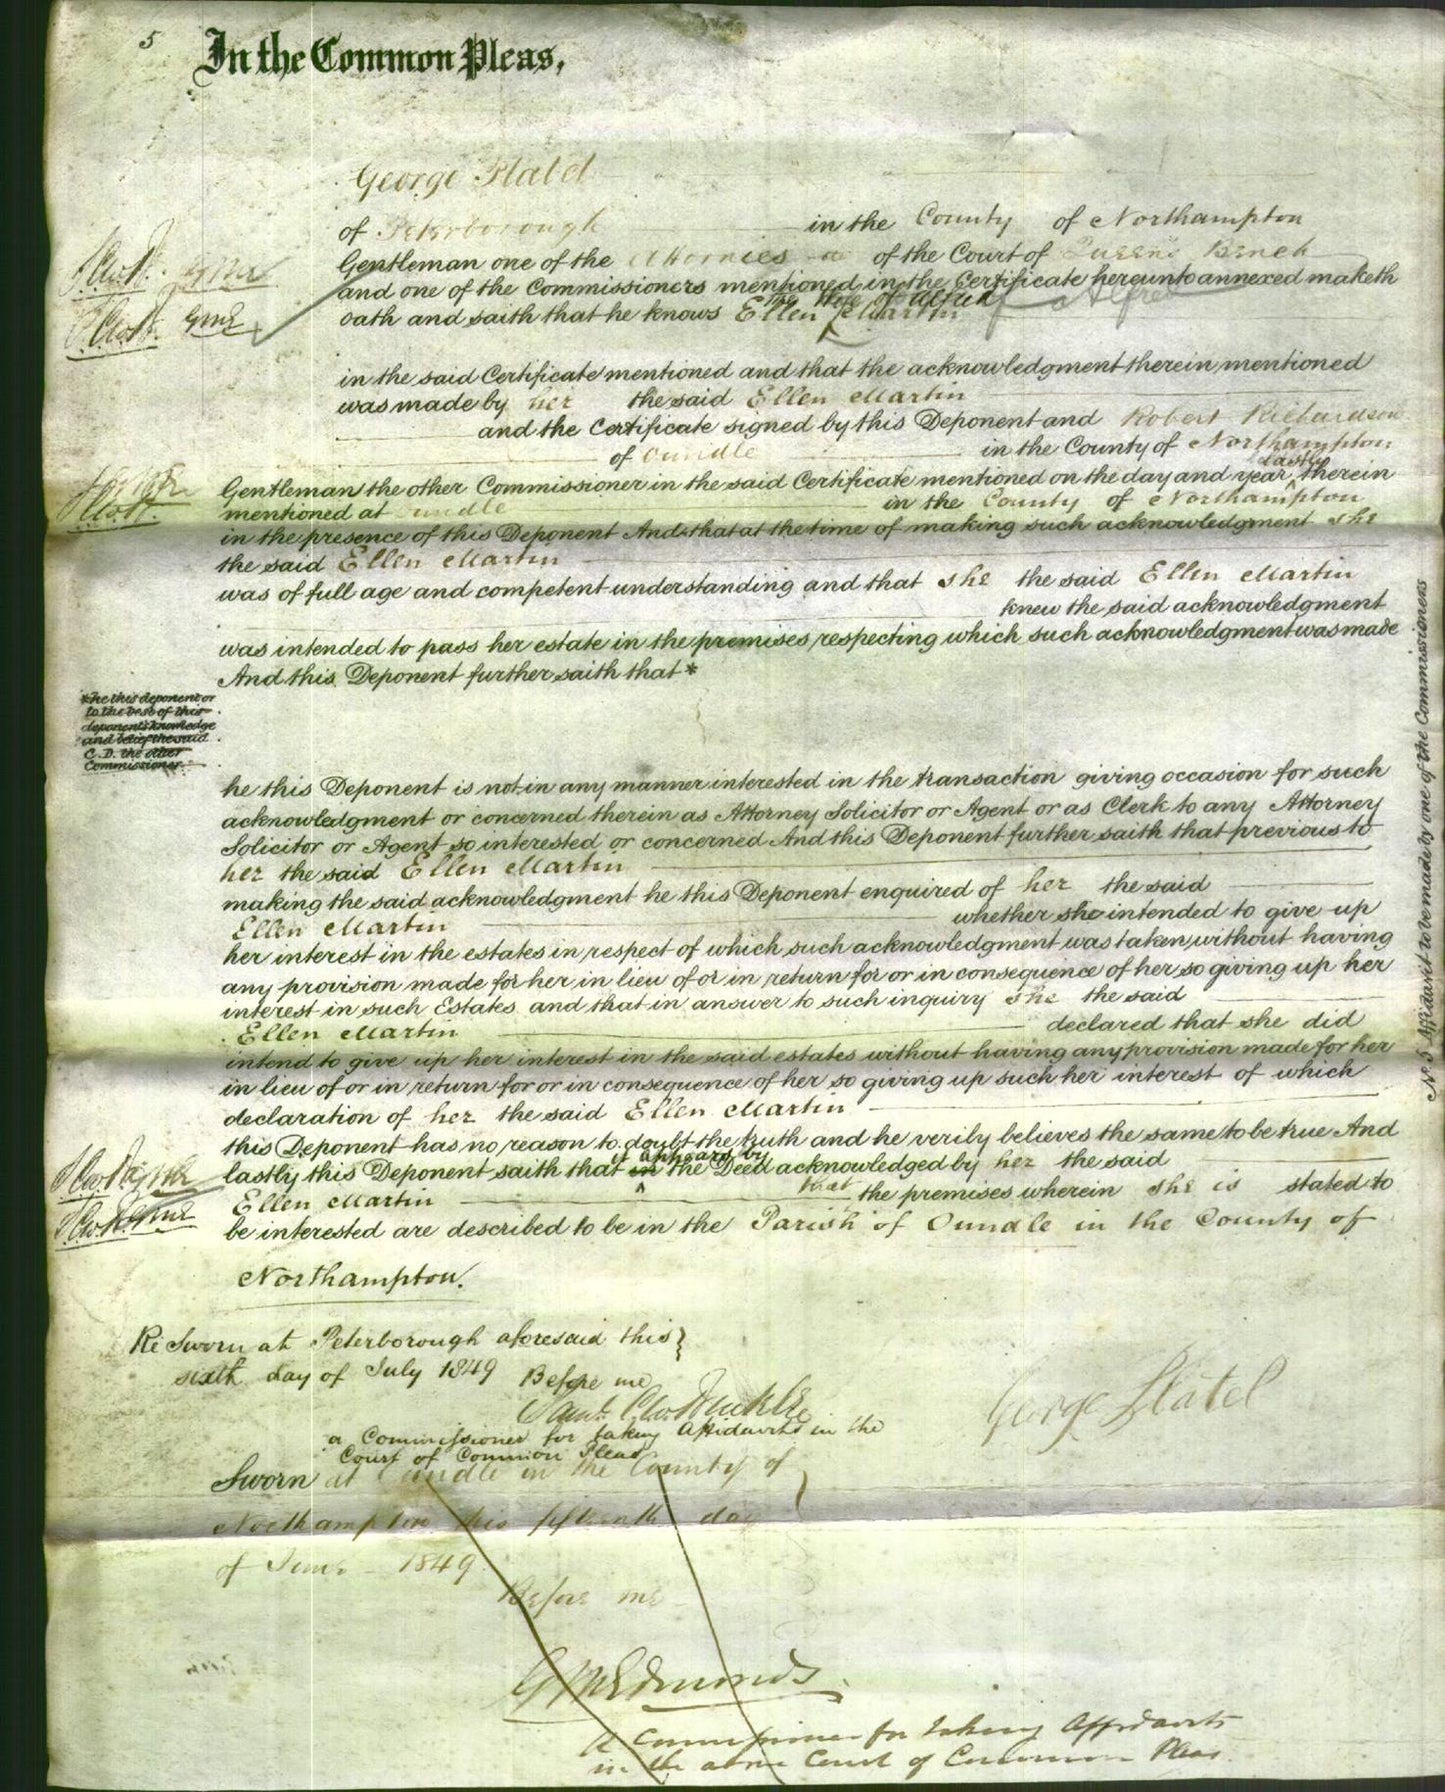 5
In the Common Pleas,
George
of Peterborough in the County of Northampton
Gentleman one of the Attornies of the Court of Queens Bench
and one of the Commissioners mentioned in the Certificate hereunto annexed maketh
the Wife of Alfred Alfred
oath and saith that he knows Ellen Martin
in the said Certificate mentioned and that the acknowledgment therein mentioned
was made by her the said Ellen Martin
and the Certificate signed by this Deponent and Robert Richardson
of Oundle in the County of Northampton
lastly
Gentleman the other Commissioner in the said Certificate mentioned on the day and year therein
mentioned at Oundle in the County of Northampton
in the presence of this Deponent And that at the time of making such acknowledgment she
the said Ellen Martin
was of full age and competent understanding and that she the said Ellen Martin
knew the said acknowledgment
was intended to pass her estate in the premises respecting which such acknowledgment was made
And this Deponent further saith that *
*he this deponent or
to the best of this
deponents knowledge
and belief the said
C.D. the other
Commissioner
he this Deponent is not in any manner interested in the transaction giving occasion for such
acknowledgment or concerned therein as Attorney Solicitor or Agent or as Clerk to any Attorney
Solicitor or Agent so interested or concerned And this Deponent further saith that previous to
her the said Ellen Martin
making the said acknowledgment he this Deponent enquired of her the said
Ellen Martin whether she intended to give up
her interest in the estates in respect of which such acknowledgment was taken without having
any provision made for her in lieu of or in return for or in consequence of her so giving up her
interest in such Estates and that in answer to such inquiry she the said
Ellen Martin declared that she did
intend to give up her interest in the said estates without having any provision made for her
in lieu of or in return for or in consequence of her so giving up such her interest of which
declaration of her the said Ellen Martin
this Deponent has no reason to doubt the truth and he verily believes the same to be true And
it appears by
lastly this Deponent saith that in the Deed acknowledged by her the said
Ellen Martin that the premises wherein she is stated to
be interested are described to be in the Parish of Oundle in the County of
Northampton.
Re Sworn at Peterborough aforesaid this
sixth day of July 1849 Before me
a Commissioner for taking Affidavits in the
Court of Common Pleas
George
Sworn at Oundle in the County of
Northampton this fifteenth day
of June 1849
Before me
G M Edmunds
A Commissioner for taking Affidavits
in the above Court of Common Pleas
No. 5 Affidavit to be made by one of the Commissioners